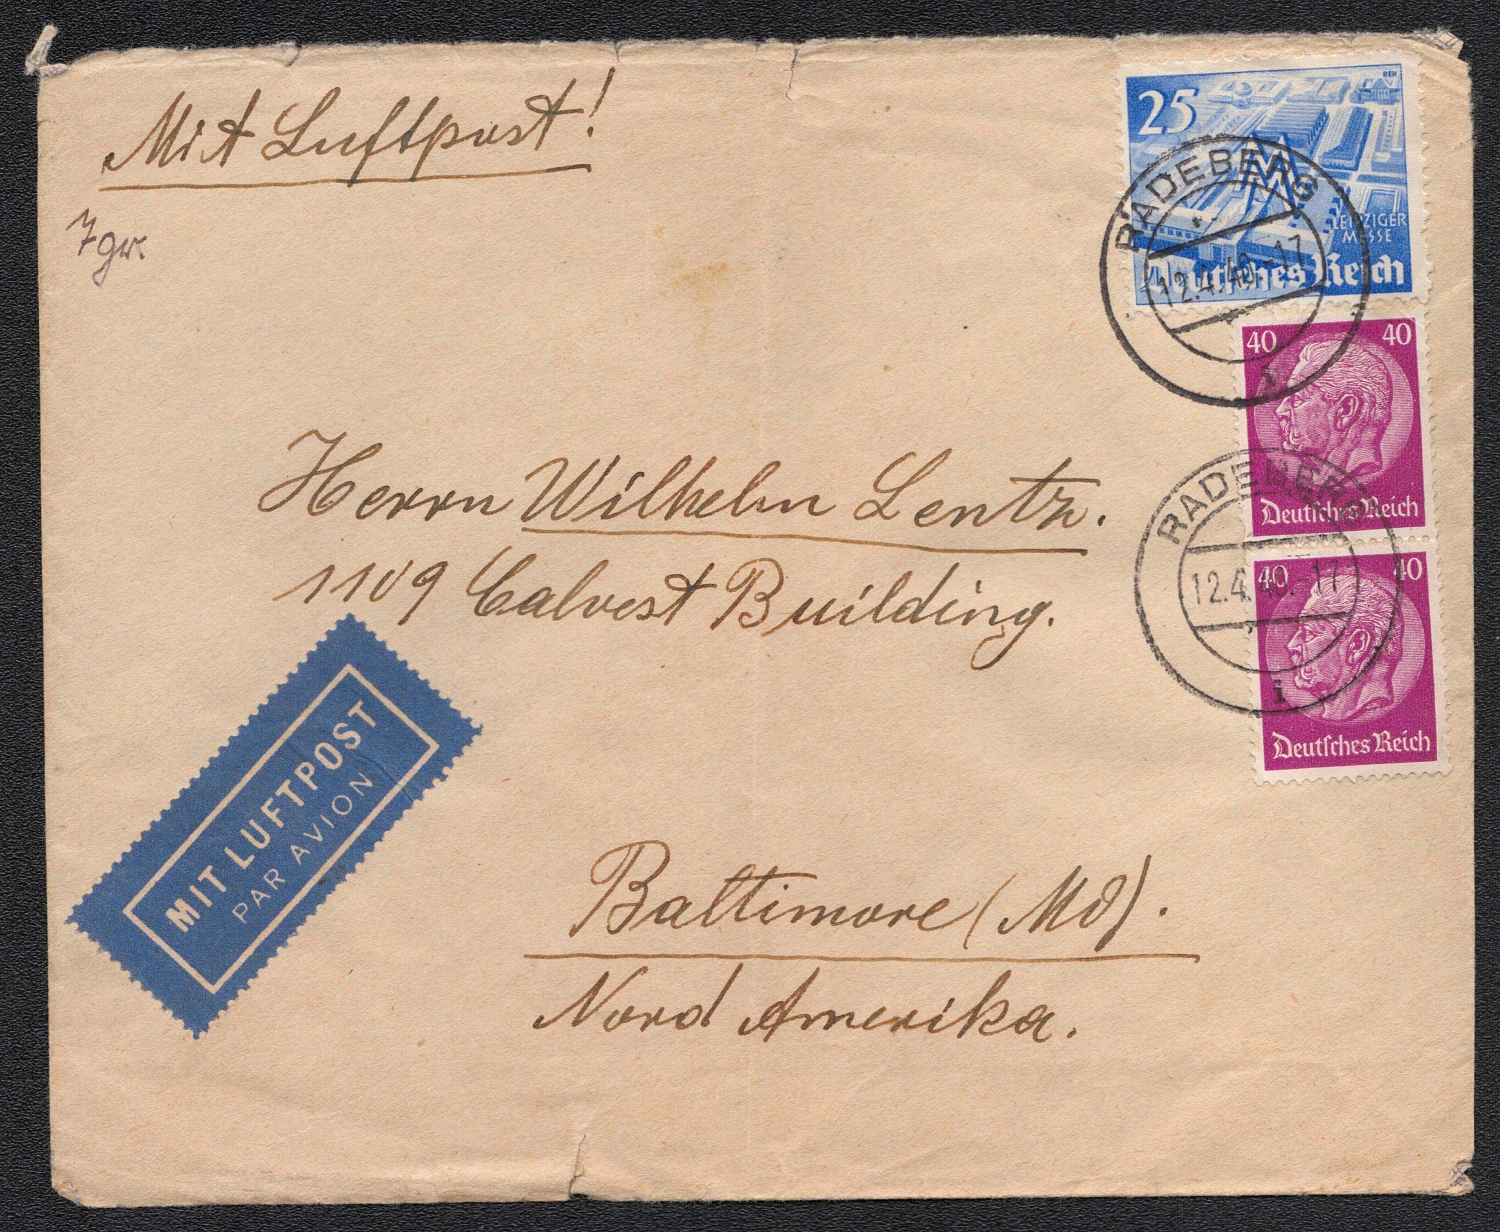 Mit Luftpost!
7 gr.
25
REH
LEIPZIGER
MESSE
Deutsches Reich
RADEBERG
12.4.40.-17
40 40
Deutsches Reich
RADEBERG
12.4.40.-17
i
40 40
Deutsches Reich
Herrn Wilhelm Lentz.
1109 Calvest Building.
MIT LUFTPOST
PAR AVION
Baltimore (Md).
Nord Amerika.